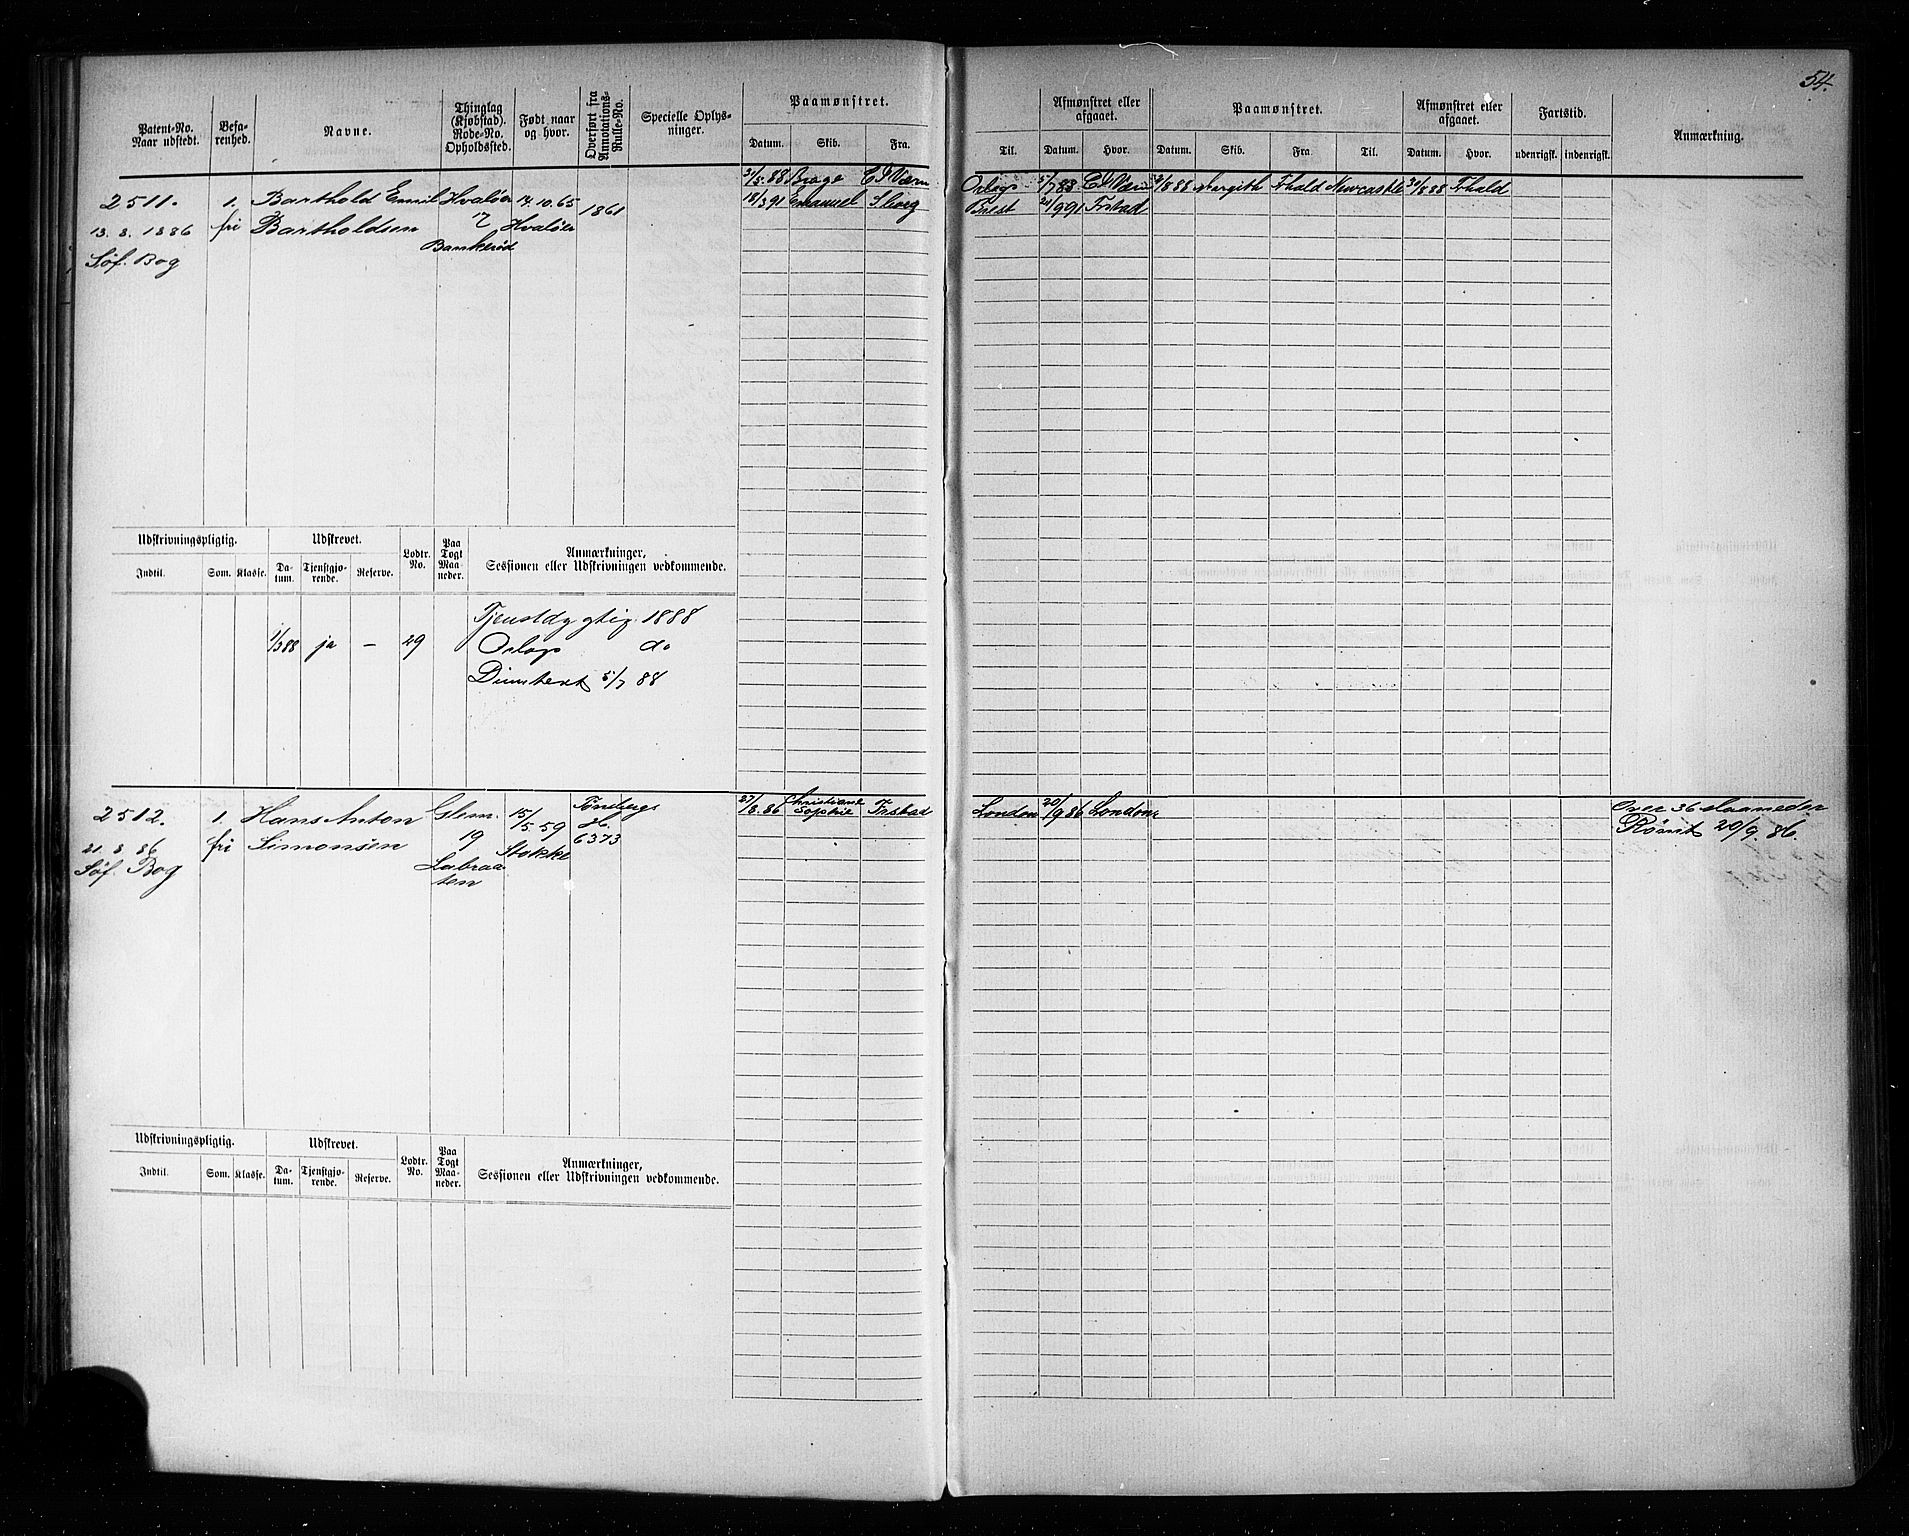 54.
Patent-No. Naar udstedt. Befarenhed. Navne. Thinglag (Kjøbstad). Rode-No. Opholdssted. Født naar og hvor. Overført fra Annotations-Rulle-No. Specielle Oplysninger. Paamønstret. Afmønstret eller afgaaet. Paamønstret. Afmønstret eller afgaaet. Fartstid. Anmærkning.
Datum. Skib. Fra. Til. Datum. Hvor. Datum. Skib. Fra. Til. Datum. Hvor. udenrigsk. indenrigsk.
2511. 1. Barthold Emil Hvaløer 14.10.65 1861
13.8.1886 fri Bartholdsen 7 Hvaløer
Søf. Bog Bankerød
/5.88 Brage Orlogs 5/7 88 /8 88 Margith Fhald Newcastle /8 88 Fhald
18/3 91 Emanuel Sborg Brest /9 91 Frstad
Udskrivningspligtig. Udskrevet. Lodtr. No. Paa Togt Maaneder. Anmærkninger, Sessionen eller Udskrivningen vedkommende.
Indtil. Som. Klasse. Datum. Tjenstgjørende. Reserve.
Tjenstdygtig 1888
1/3 88 ja — 29 Orlogs do
Dimitteret 5/7 88
2512. 1. Hans Anton Glem. 15/5.59 Tønsbergs
21.8.86 fri Simonsen 19 Stokke H. 6373
Søf. Bog Labraaten
27/8.86 Christiane Sophie Frstad London 20/9 86 London.
Over 36 Maaneder
Rømt 20/9. 86.
Udskrivningspligtig. Udskrevet. Lodtr. No. Paa Togt Maaneder. Anmærkninger, Sessionen eller Udskrivningen vedkommende.
Indtil. Som. Klasse. Datum. Tjenstgjørende. Reserve.